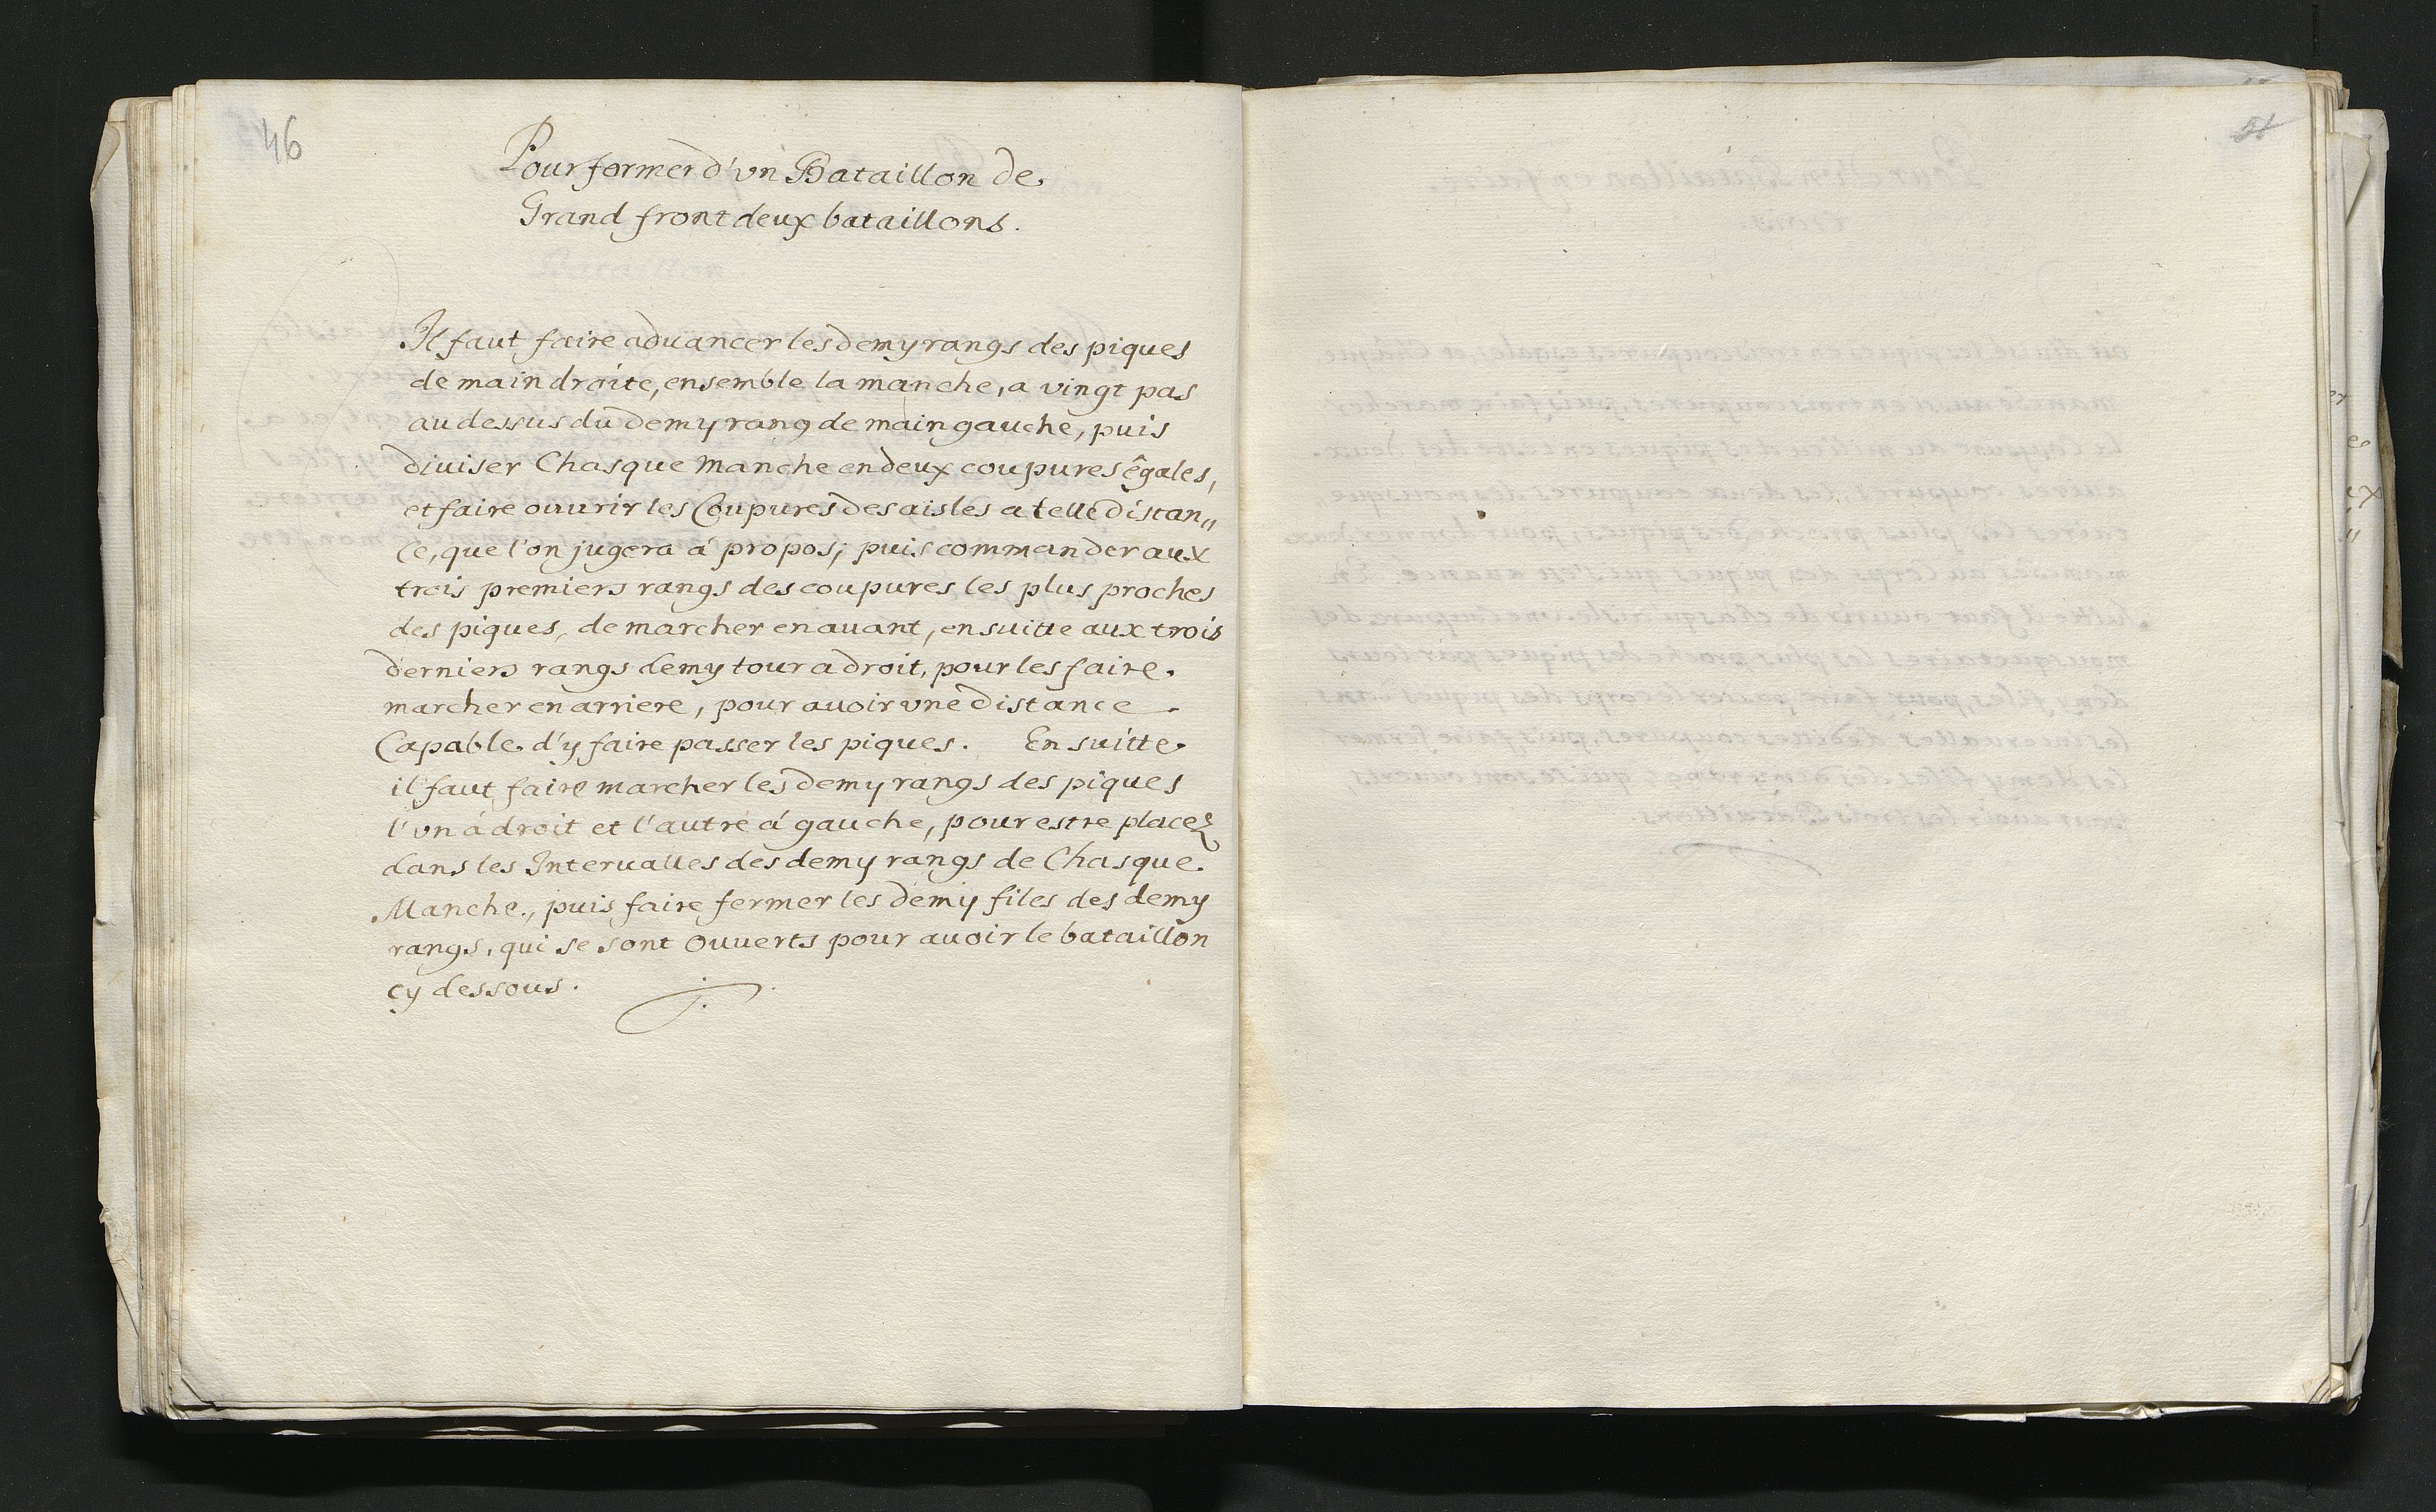 46
Pour former d'vn Bataillon de
Grand front deux bataillons.
Il faut faire aduancer les demy rangs des piques
de main droite, ensemble la manche, a vingt pas
au dessus du demy rang de main gauche, puis
diuiser Chasque manche en deux coupures êgales,
et faire ouurir les Coupures des aisles a telle distan„
ce, que l'on jugera á propos; puis commander aux
trois premiers rangs des coupures les plus proches
des piques, de marcher en auant, en suitte aux trois
derniers rangs demy tour a droit, pour les faire
marcher en arriere, pour auoir vne distance
Capable d'y faire passer les piques. En suitte
il faut faire marcher les demy rangs des piques
l'vn á droit et l'autre á gauche, pour estre placez
dans les Interualles des demy rangs de Chasque
Manche, puis faire fermer les demy files des demy
rangs, qui se sont Ouuerts pour auoir le bataillon
cy dessous.